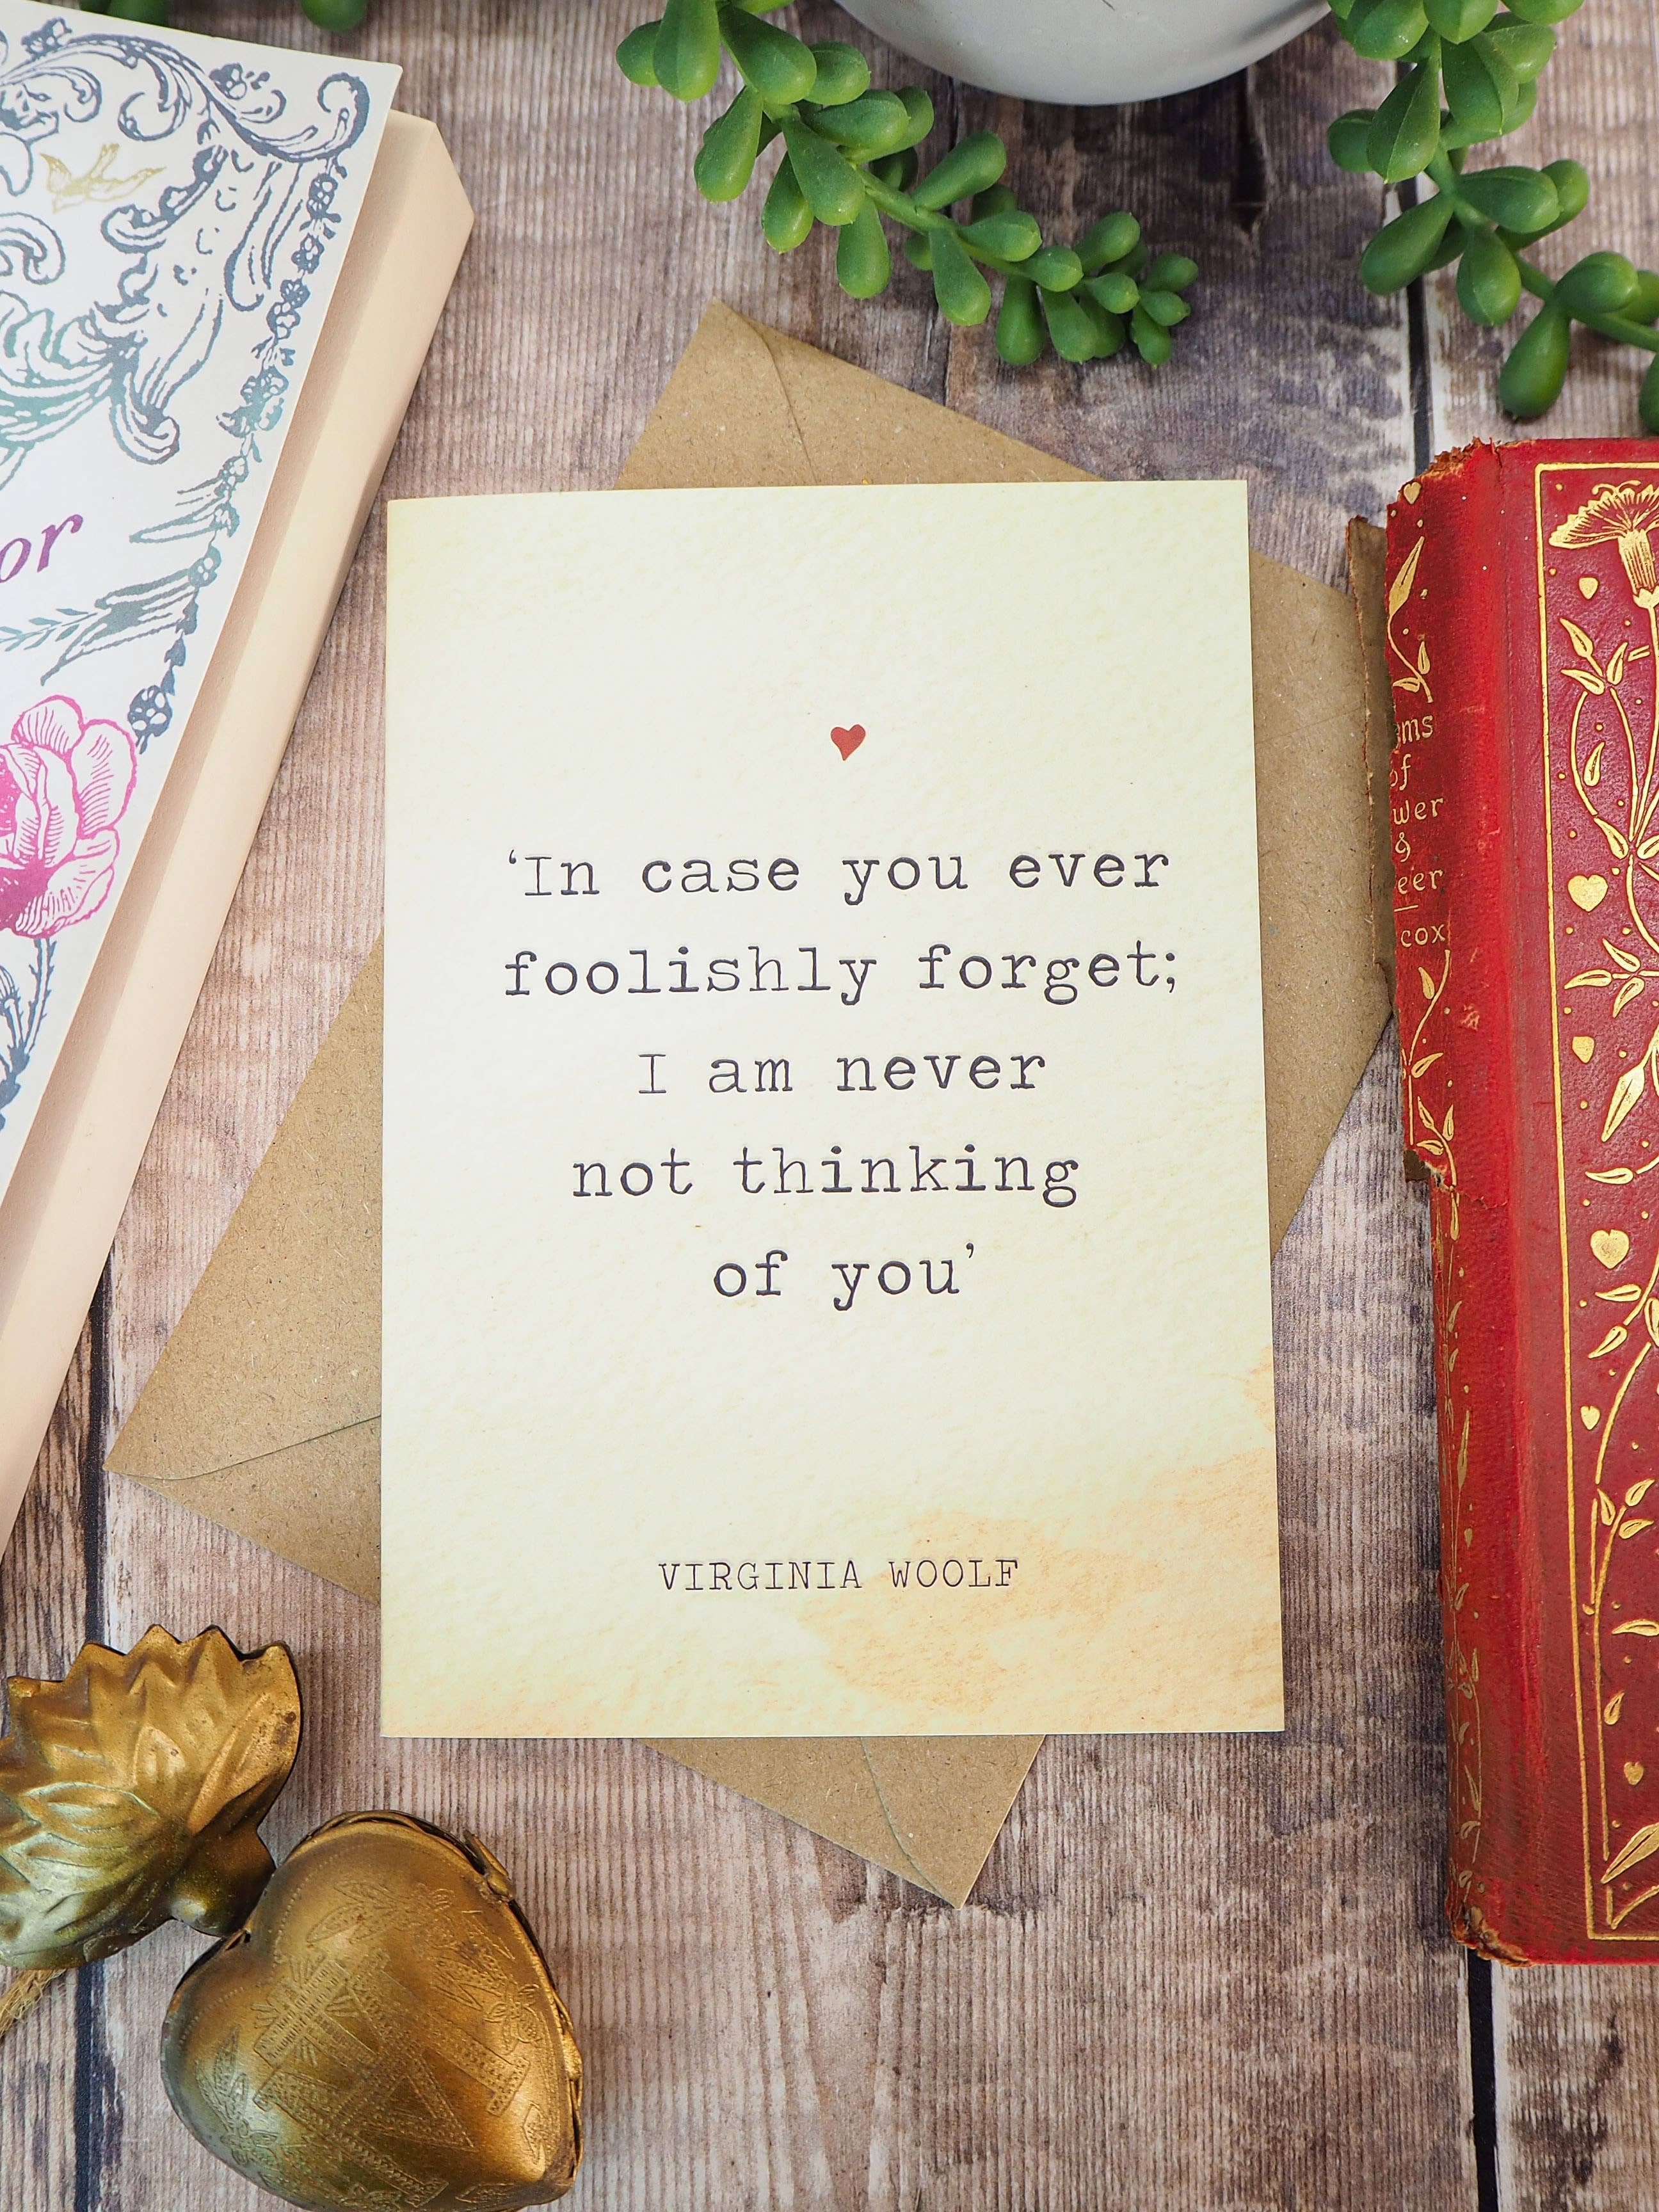 ‘In case you ever
foolishly forget;
I am never
not thinking
of you’
VIRGINIA WOOLF
or
of
&